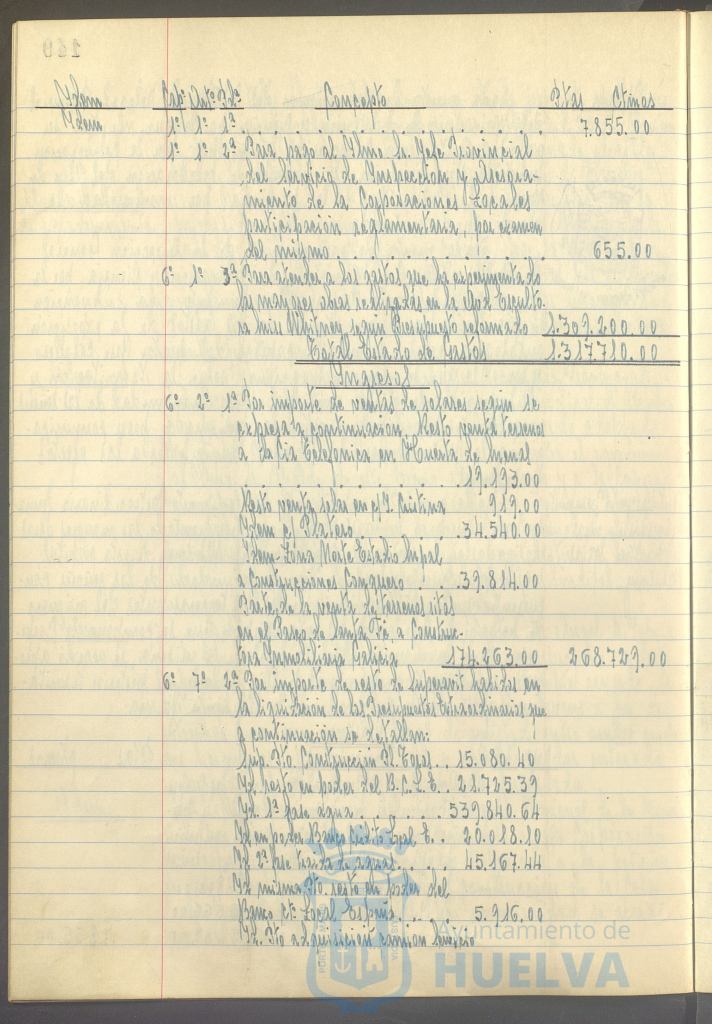 Idem Cap° Art° Pdª Concepto Ptas Ctimos
Idem 1° 1° 1ª . . . . . . . . . . . . . . 7.855.00
1° 1° 2ª Para pago al Iltmo Sr. Jefe Provincial
del Servicio de Inspeccion y Asesora-
miento de la Corporaciones Locales
participación reglamentaria, por examen
del mismo . . . . . . . . . . 655.00
6° 1° 3ª Para atender a los gastos que ha experimentado
las mayores obras realizadas en la Avd. Esculto-
ra Miss Whitney según Presupuesto reformado 1.309.200.00
Total Estado de Gastos 1.317.710.00
Ingresos
6° 2° 1ª Por importe de ventas de solares según se
expresa a continuacion. Resto venta terrenos
a la Cia Telefonica en Huerta de Mena
. . . . . . . . . . 19.193.00
Resto venta solar en c/ I. Cristina 919.00
Idem c/ Platero . . . . . 34.540.00
Idem Zona Norte Estadio Mpal
a Construcciones Conquero . . . 39.814.00
Parte de la venta de terrenos sitos
en el Barrio de Santa Fé, a Construc-
tora Inmobiliaria Galicia 174.263.00 268.729.00
6° 7° 2ª Por importe de resto de Superavit habidos en
la liquidación de los Presupuestos Extraordinarios que
a continuación se detallan:
Sup. Pto. Construcción Pl. Toros . . 15.080.40
Id. resto en poder del B.C.L.E. . . 21.725.39
Id. 1ª fase agua . . . . . 539.840.64
Id. en poder Banco Crdto Local E. . . 20.018.10
Id. 2ª fase traida de aguas . . . 45.167.44
Id. mismo Pto. resto en poder del
Banco Ct° Local España . . . 5.916.00
Id. Pto adquisicion camion Servicio
Ayuntamiento de
HUELVA